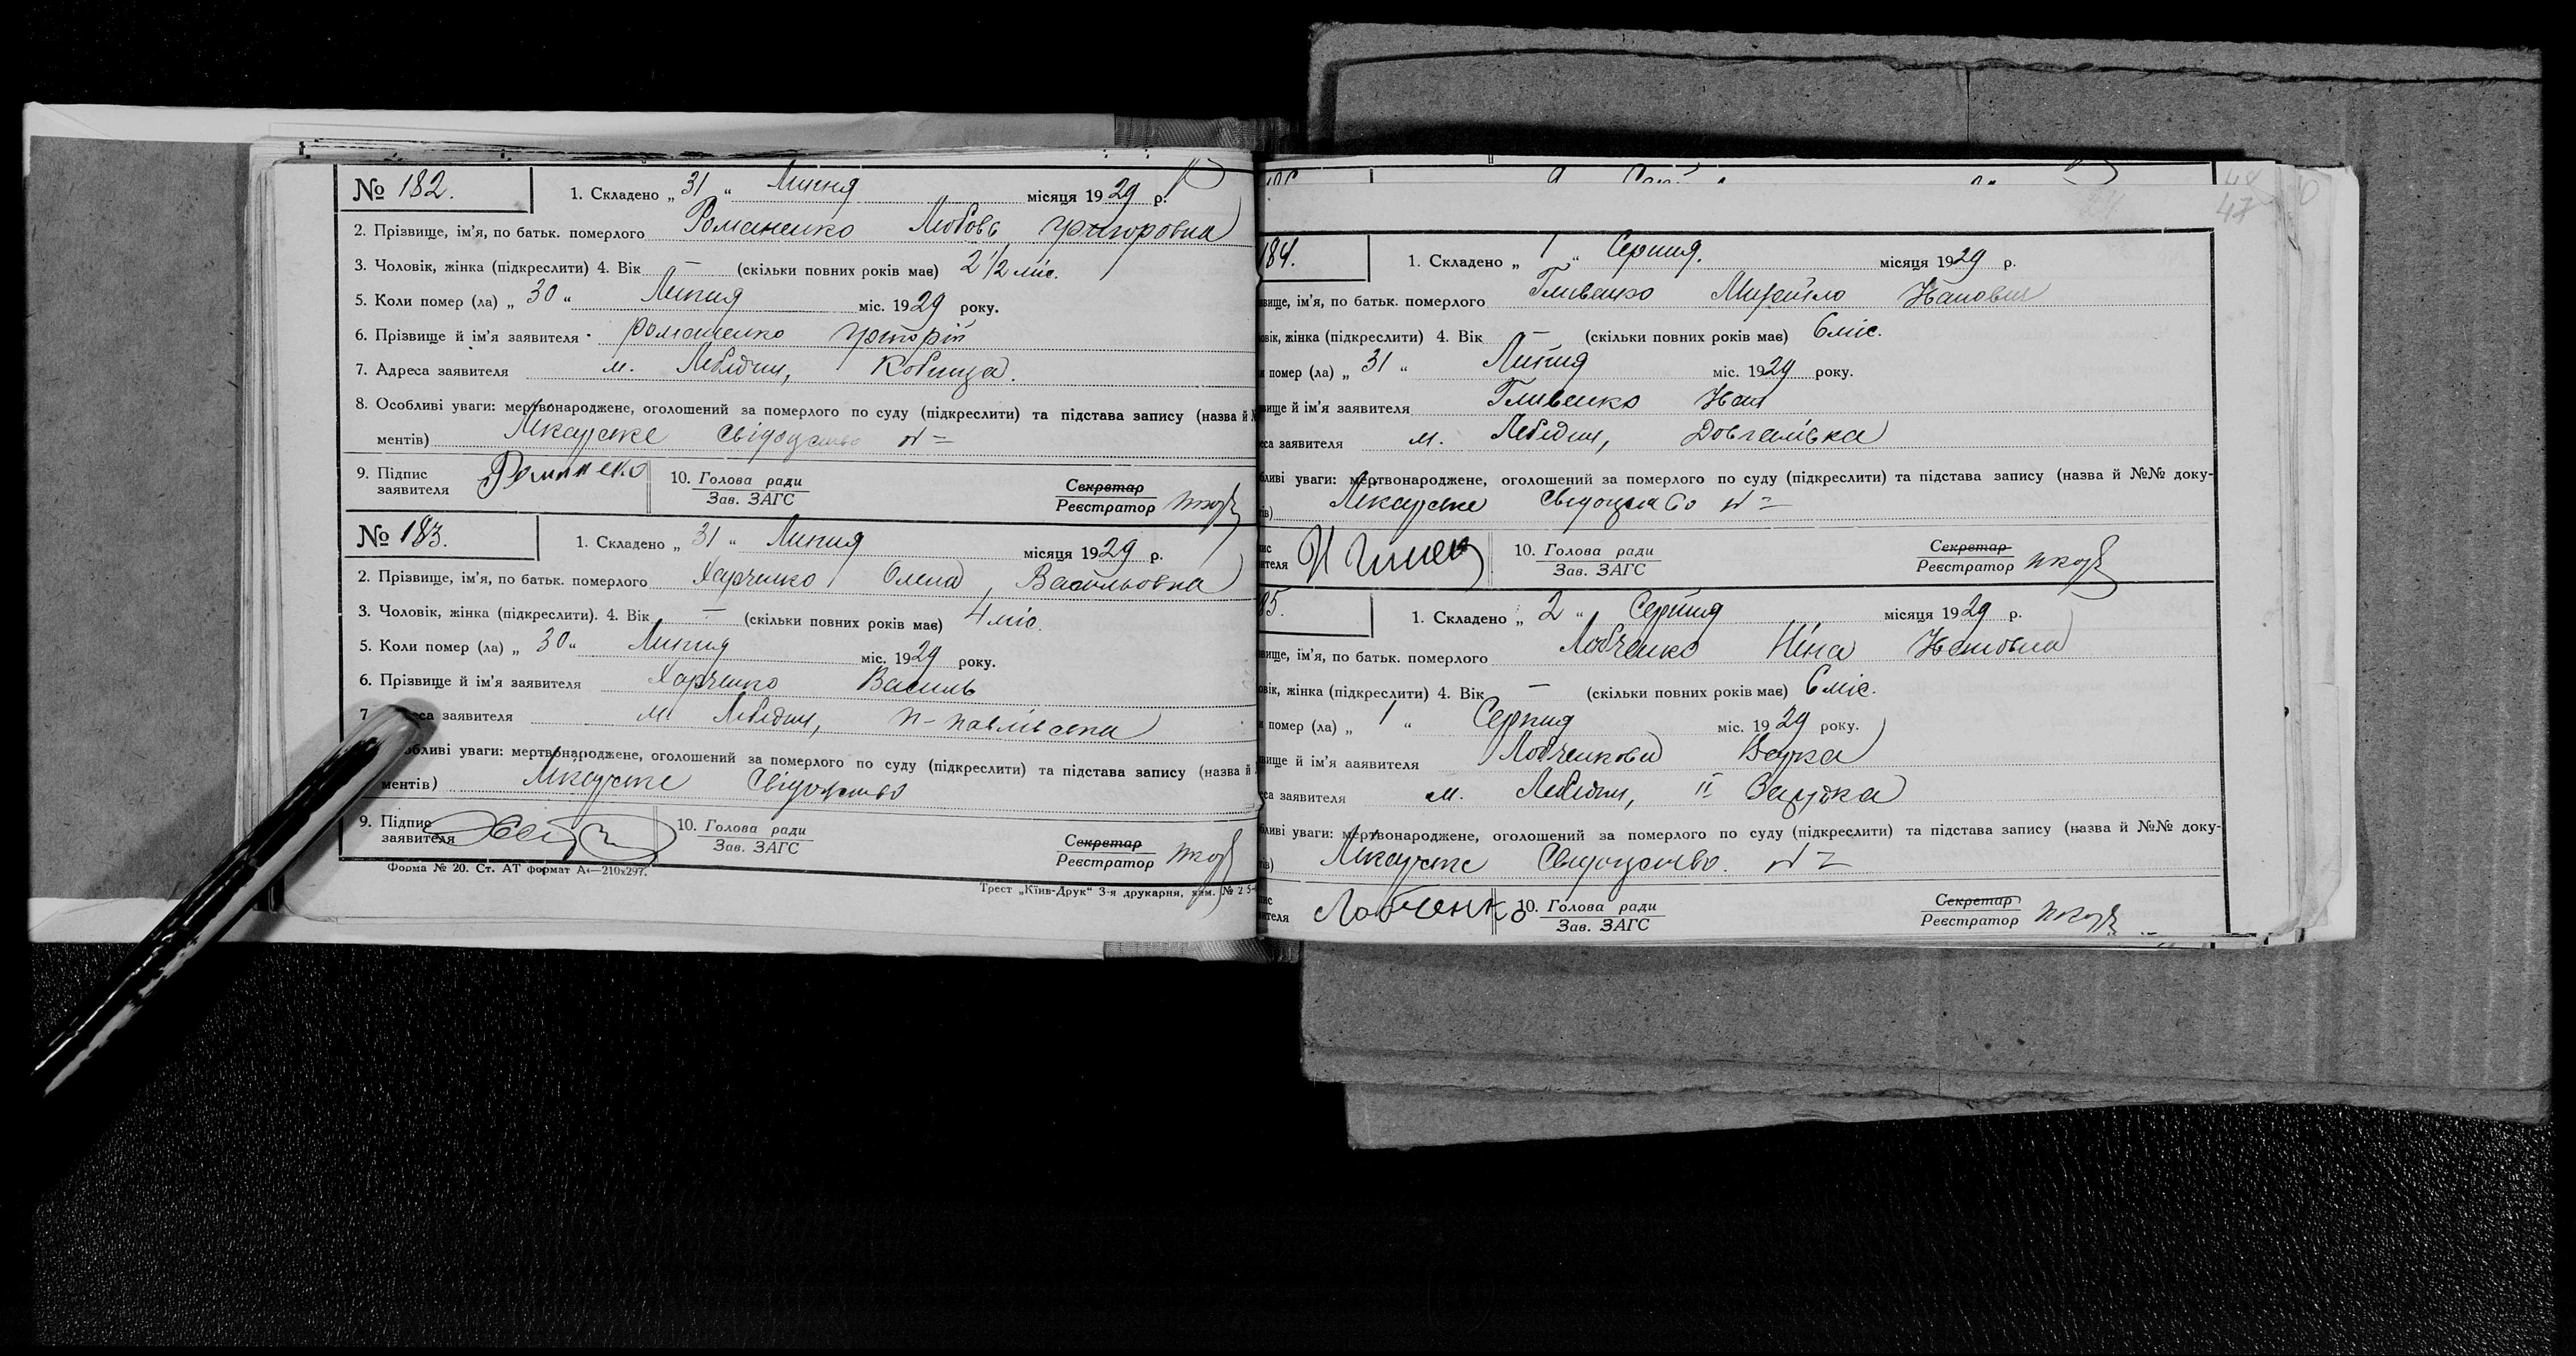 № 182. 1. Складено „ 31 “ Липня місяця 1929 р.
2. Прізвище, ім'я, по батьк. померлого Романенко Любовь Григоровна
3. Чоловік, жінка (підкреслити) 4. Вік — (скільки повних років має) 2 1/2 міс.
5. Коли помер (ла) „ 30 “ Липня міс. 1929 року.
6. Прізвище й ім'я заявителя Романенко Григорій
7. Адреса заявителя м. Лебедин, Кобища.
8. Особливі уваги: мертвонароджене, оголошений за померлого по суду (підкреслити) та підстава запису (назва й
ментів) Лікарське свідоцтво №=
9. Підпис заявителя 10. Голова ради Зав. ЗАГС Секретар Реєстратор
№ 183. 1. Складено „ 31 “ Липня місяця 1929 р.
2. Прізвище, ім'я, по батьк. померлого Харченко Олена Васильовна
3. Чоловік, жінка (підкреслити). 4. Вік — (скільки повних років має) 4 міс.
5. Коли помер (ла) „ 30 “ Липня міс. 1929 року.
6. Прізвище й ім'я заявителя Харченко Василь
7 еса заявителя м. Лебедин, п-павлівська
обливі уваги: мертвонароджене, оголошений за померлого по суду (підкреслити) та підстава запису (назва й
ментів) Лікарське свідоцтво
9. Підпис заявителя 10. Голова ради Зав. ЗАГС Секретар Реєстратор
Форма № 20. Ст. АТ формат А4—210х297.
Трест „Київ-Друк“ 3-я друкарня, зам. № 2
48
47
184. 1. Складено „ 1 “ Серпня. місяця 1929 р.
вище, ім'я, по батьк. померлого Гливенко Михайло Іванович
овік, жінка (підкреслити) 4. Вік — (скільки повних років має) 6 міс.
и помер (ла) „ 31 “ Липня міс. 1929 року.
вище й ім'я заявителя Гливенко Іван
еса заявителя м. Лебедин, Довгалівка
бливі уваги: мертвонароджене, оголошений за померлого по суду (підкреслити) та підстава запису (назва й №№ доку-
тів) Лікарське свідоцтво №=
пис вителя 10. Голова ради Зав. ЗАГС Секретар Реєстратор
85. 1. Складено „ 2 “ Серпня місяця 1929 р.
вище, ім'я, по батьк. померлого Лобченко Ніна Івановна
овік, жінка (підкреслити) 4. Вік — (скільки повних років має) 6 міс.
и помер (ла) „ 1 “ Серпня міс. 1929 року.
вище й ім'я аявителя Лобченкова Варка
еса заявителя м. Лебедин, II
бливі уваги: мертвонароджене, оголошений за померлого по суду (підкреслити) та підстава запису (назва й №№ доку-
тів) Лікарське свідоцтво. №=
пис вителя Лобченко 10. Голова ради Зав. ЗАГС Секретар Реєстратор